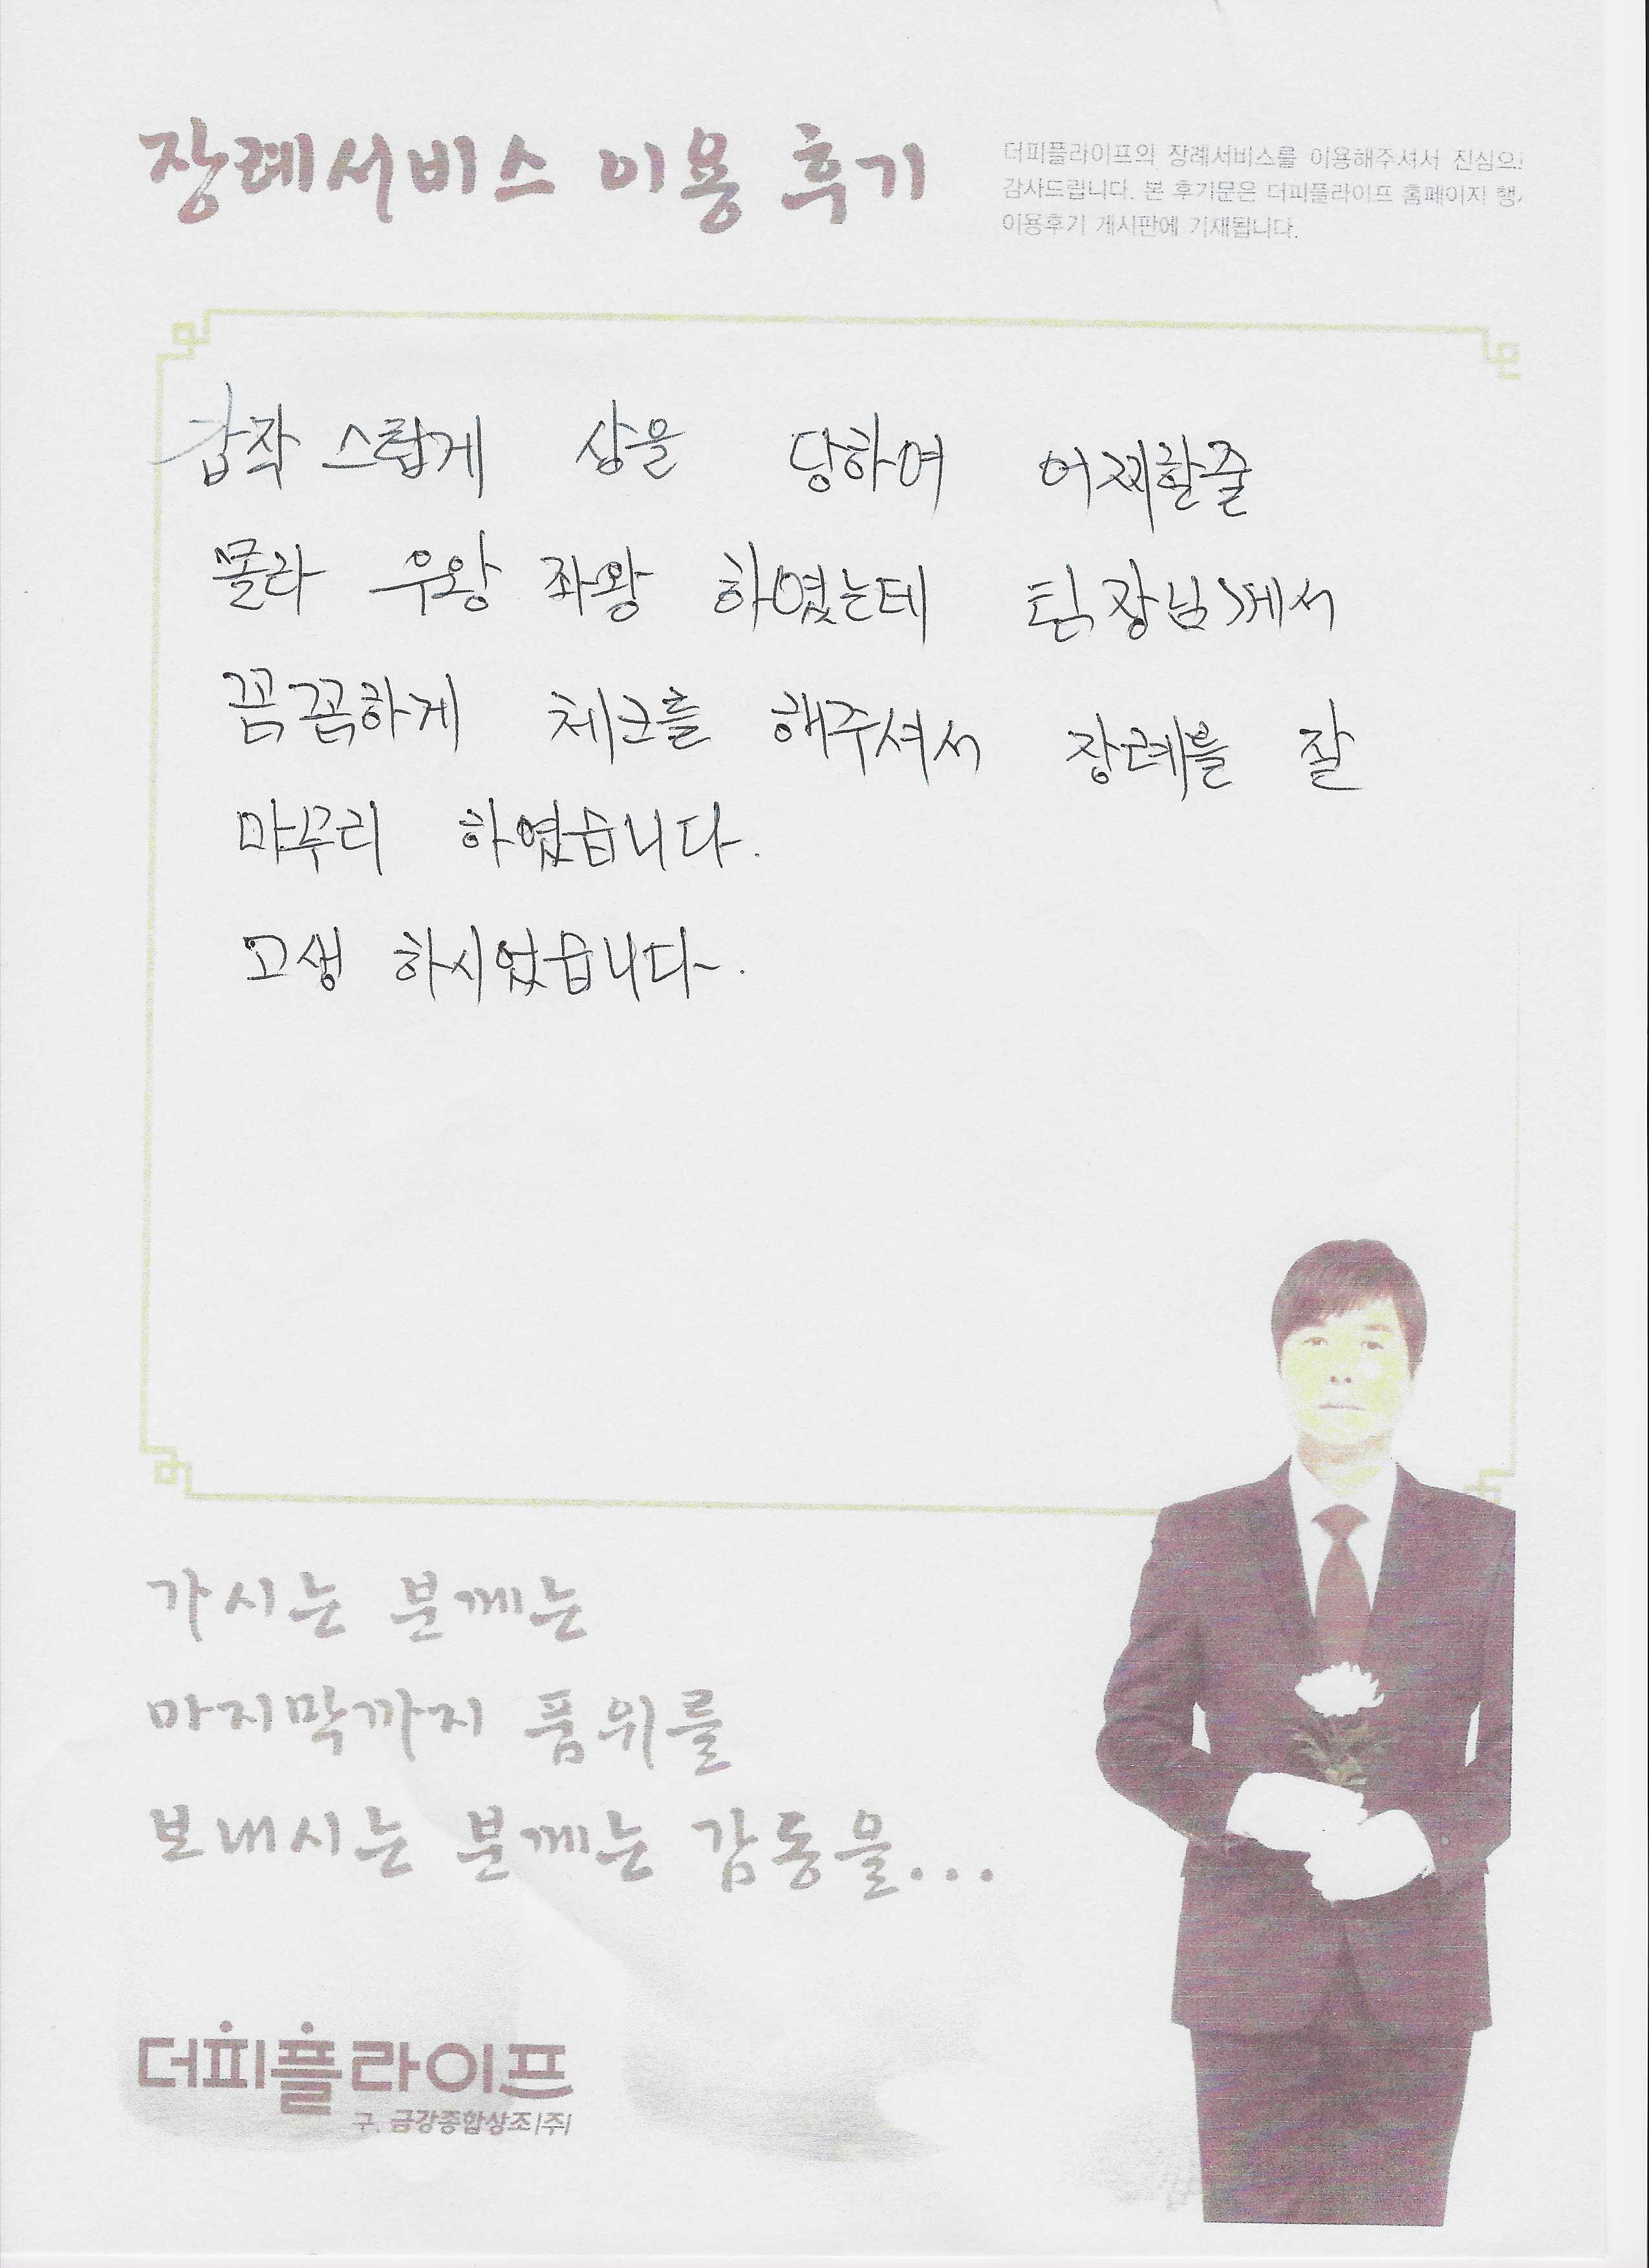 장례서비스 이용 후기
더피플라이프의 장례서비스를 이용해주셔서 진심으
감사드립니다. 본 후기문은 더피플라이프 홈페이지 행
이용후기 게시판에 기재됩니다.
갑작 스럽게 상을 당하여 어찌할줄
몰라 우왕 좌왕 하였는데 팀장님께서
꼼꼼하게 체크를 해주셔서 장례를 잘
마무리 하였습니다.
고생 하시었습니다.
가시는 분께는
마지막까지 품위를
보내시는 분께는 감동을...
더피플라이프
구. 금강종합상조(주)